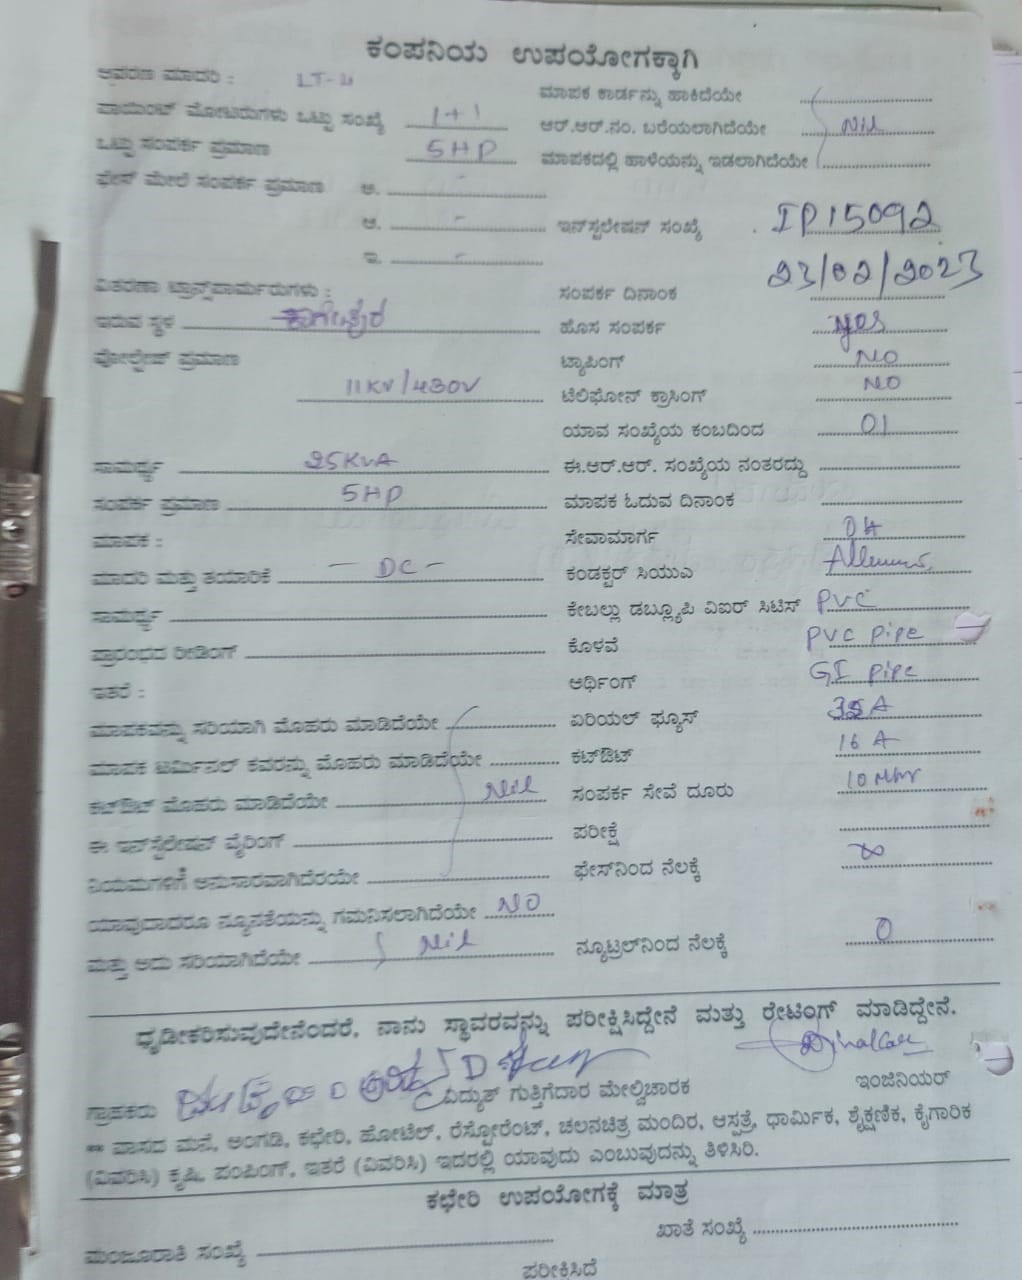 ಕಂಪನಿಯ ಉಪಯೋಗಕ್ಕಾಗಿ
ಆವರಣ ಮಾದರಿ : LT-4
ಮಾಪಕ ಕಾರ್ಡನ್ನು ಹಾಕಿದೆಯೇ
ಪಾಯಿಂಟ್ ಮೋಟರುಗಳು ಒಟ್ಟು ಸಂಖ್ಯೆ 1+1
ಆರ್.ಆರ್.ನಂ. ಬರೆಯಲಾಗಿದೆಯೇ Nil
ಒಟ್ಟು ಸಂಪರ್ಕ ಪ್ರಮಾಣ 5HP
ಮಾಪಕದಲ್ಲಿ ಹಾಳೆಯನ್ನು ಇಡಲಾಗಿದೆಯೇ
ಫೇಸ್ ಮೇಲೆ ಸಂಪರ್ಕ ಪ್ರಮಾಣ ಅ. -
ಆ. -
ಇನ್‌ಸ್ಟಲೇಷನ್ ಸಂಖ್ಯೆ IP15092
ಇ. -
ವಿತರಣಾ ಟ್ರಾನ್ಸ್‌ಫಾರ್ಮರುಗಳು :
ಸಂಪರ್ಕ ದಿನಾಂಕ 23/02/2023
ಇರುವ ಸ್ಥಳ
ಹೊಸ ಸಂಪರ್ಕ yes
ವೋಲ್ಟೇಜ್ ಪ್ರಮಾಣ 11KV/430V
ಟ್ಯಾಪಿಂಗ್ NO
ಟೆಲಿಫೋನ್ ಕ್ರಾಸಿಂಗ್ NO
ಯಾವ ಸಂಖ್ಯೆಯ ಕಂಬದಿಂದ 01
ಸಾಮರ್ಥ್ಯ 25KVA
ಈ.ಆರ್.ಆರ್. ಸಂಖ್ಯೆಯ ನಂತರದ್ದು
ಸಂಪರ್ಕ ಪ್ರಮಾಣ 5HP
ಮಾಪಕ ಓದುವ ದಿನಾಂಕ
ಮಾಪಕ :
ಸೇವಾಮಾರ್ಗ OH
ಮಾದರಿ ಮತ್ತು ತಯಾರಿಕೆ - DC -
ಕಂಡಕ್ಟರ್ ಸಿಯುಎ
ಸಾಮರ್ಥ್ಯ
ಕೇಬಲ್ಲು ಡಬ್ಲ್ಯೂಪಿ ವಿಐರ್ ಸಿಟಿಸ್ PVC
ಪ್ರಾರಂಭದ ರೀಡಿಂಗ್
ಕೊಳವೆ PVC pipe
ಇತರೆ :
ಅರ್ಥಿಂಗ್ GI pipe
ಮಾಪಕವನ್ನು ಸರಿಯಾಗಿ ಮೊಹರು ಮಾಡಿದೆಯೇ
ಏರಿಯಲ್ ಫ್ಯೂಸ್ 35A
ಮಾಪಕ ಟರ್ಮಿನಲ್ ಕವರನ್ನು ಮೊಹರು ಮಾಡಿದೆಯೇ
ಕಟ್‌ಔಟ್ 16 A
ಕಟ್‌ಔಟ್ ಮೊಹರು ಮಾಡಿದೆಯೇ Nil
ಸಂಪರ್ಕ ಸೇವೆ ದೂರು 10 Mtr
ಈ ಇನ್‌ಸ್ಟಲೇಷನ್ ವೈರಿಂಗ್
ಪರೀಕ್ಷೆ
ನಿಯಮಗಳಿಗೆ ಅನುಸಾರವಾಗಿದೆರಯೇ
ಫೇಸ್‌ನಿಂದ ನೆಲಕ್ಕೆ ∞
ಯಾವುದಾದರೂ ನ್ಯೂನತೆಯನ್ನು ಗಮನಿಸಲಾಗಿದೆಯೇ NO
ಮತ್ತು ಅದು ಸರಿಯಾಗಿದೆಯೇ Nil
ನ್ಯೂಟ್ರಲ್‌ನಿಂದ ನೆಲಕ್ಕೆ 0
ಧೃಡೀಕರಿಸುವುದೇನೆಂದರೆ, ನಾನು ಸ್ಥಾವರವನ್ನು ಪರೀಕ್ಷಿಸಿದ್ದೇನೆ ಮತ್ತು ರೇಟಿಂಗ್ ಮಾಡಿದ್ದೇನೆ.
ಗ್ರಾಹಕರು ವಿದ್ಯುತ್ ಗುತ್ತಿಗೆದಾರ ಮೇಲ್ವಿಚಾರಕ ಇಂಜಿನಿಯರ್
** ವಾಸದ ಮನೆ, ಅಂಗಡಿ, ಕಛೇರಿ, ಹೋಟೆಲ್, ರೆಸ್ಟೋರೆಂಟ್, ಚಲನಚಿತ್ರ ಮಂದಿರ, ಆಸ್ಪತ್ರೆ, ಧಾರ್ಮಿಕ, ಶೈಕ್ಷಣಿಕ, ಕೈಗಾರಿಕ
(ವಿವರಿಸಿ) ಕೃಷಿ, ಪಂಪಿಂಗ್, ಇತರೆ (ವಿವರಿಸಿ) ಇದರಲ್ಲಿ ಯಾವುದು ಎಂಬುವುದನ್ನು ತಿಳಿಸಿರಿ.
ಕಛೇರಿ ಉಪಯೋಗಕ್ಕೆ ಮಾತ್ರ
ಮಂಜೂರಾತಿ ಸಂಖ್ಯೆ ಖಾತೆ ಸಂಖ್ಯೆ
ಪರೀಕ್ಷಿಸಿದೆ